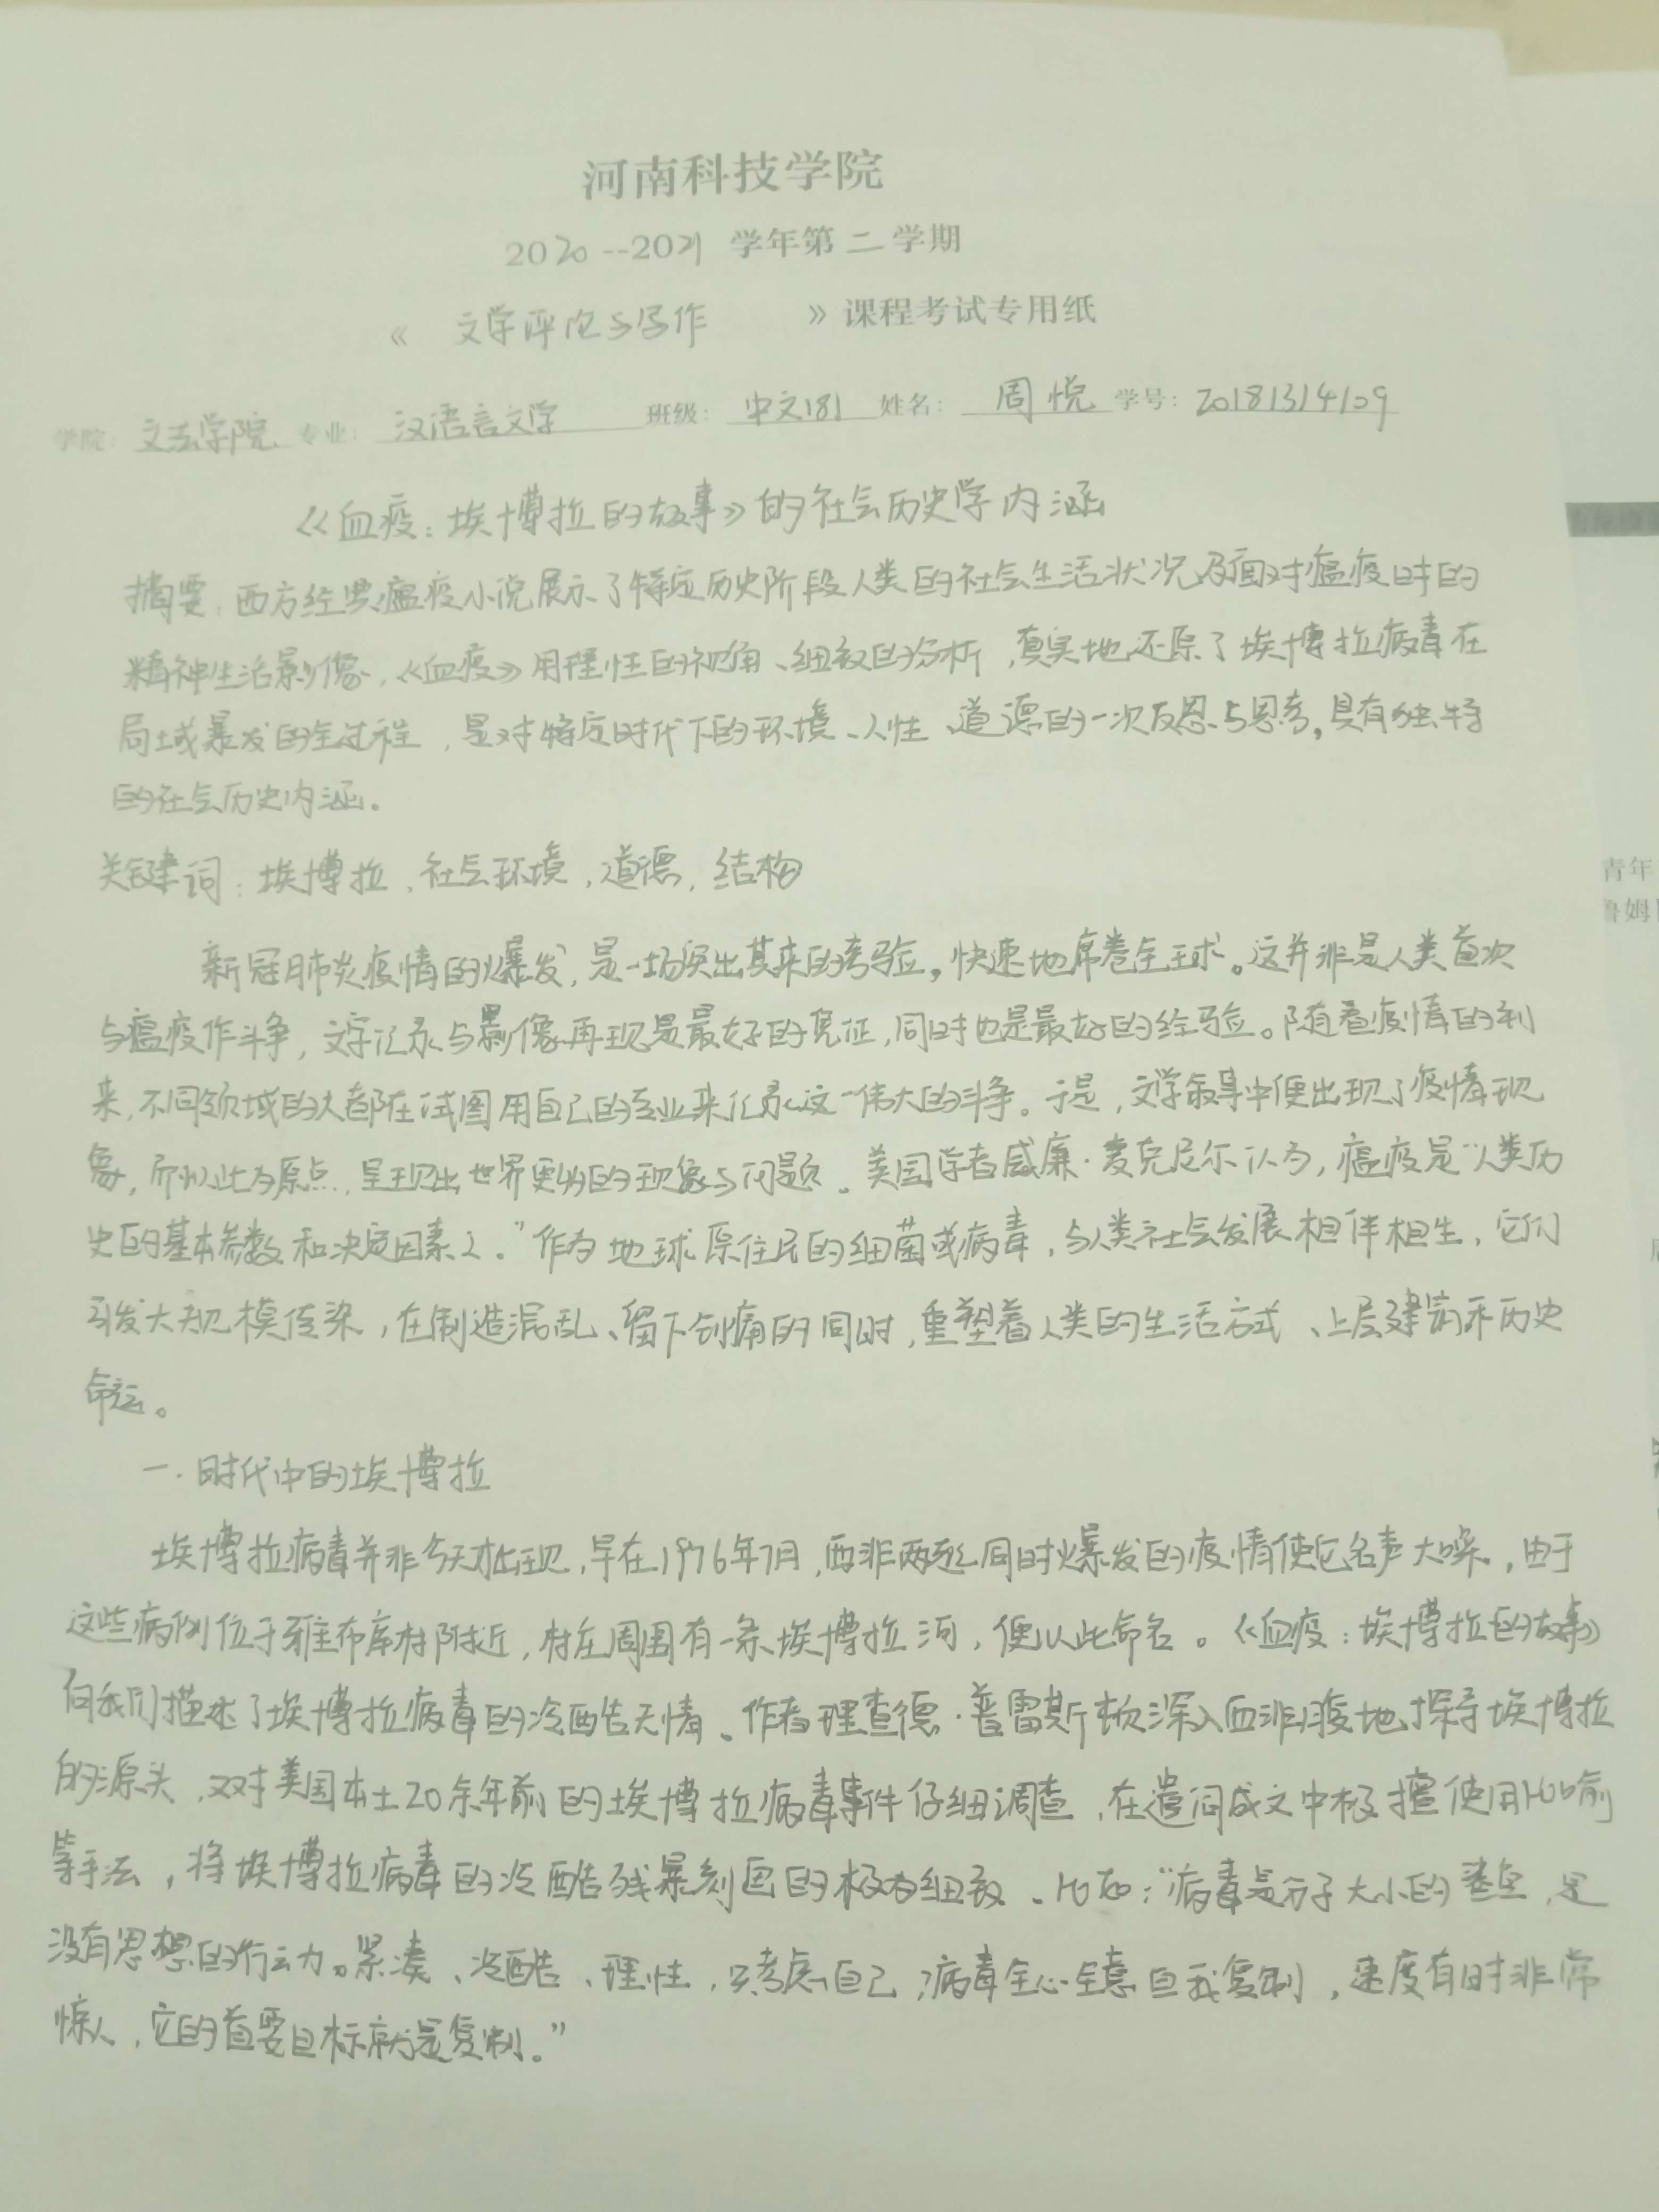 河南科技学院
2020--2021 学年第 二 学期
《 文学评论与写作 》课程考试专用纸
学院: 文法学院 专业: 汉语言文学 班级: 中文181 姓名: 周悦 学号: 20181314109
《血疫：埃博拉的故事》的社会历史学内涵
摘要：西方经典瘟疫小说展示了特定历史阶段人类的社会生活状况及面对瘟疫时的
精神生活影像，《血疫》用理性的视角、细致的分析，真实地还原了埃博拉病毒在
局域暴发的全过程，是对特定时代下的环境、人性、道德的一次反思与思考，具有独特
的社会历史内涵。
关键词：埃博拉，社会环境，道德，结构
新冠肺炎疫情的爆发，是一场突出其来的考验，快速地席卷全球。这并非是人类首次
与瘟疫作斗争，文字记录与影像再现是最好的凭证，同时也是最好的经验。随着疫情的到
来，不同领域的人都在试图用自己的专业来记录这一伟大的斗争。于是，文学叙事中便出现了疫情现
象，而以此为原点，呈现出世界更为的现象与问题。美国学者威廉·麦克尼尔认为，瘟疫是“人类历
史的基本参数和决定因素之。”作为地球原住民的细菌或病毒，与人类社会发展相伴相生，它们
引发大规模传染，在制造混乱、留下创痛的同时，重塑着人类的生活方式、上层建筑和历史
命运。
一.时代中的埃博拉
埃博拉病毒并非今天才出现，早在1976年7月，西非两起同时爆发的疫情使它名声大噪，由于
这些病例位于雅布库村附近，村庄周围有一条埃博拉河，便以此命名。《血疫：埃博拉的故事》
向我们描述了埃博拉病毒的冷酷无情。作者理查德·普雷斯顿深入血非腹地探寻埃博拉
的源头，又对美国本土20余年前的埃博拉病毒事件仔细调查，在遣词成文中极擅使用比喻
等手法，将埃博拉病毒的冷酷残暴刻画的极为细致。比如：“病毒是分子大小的鲨鱼，是
没有思想的行动力。紧凑、冷酷、理性，只考虑自己，病毒全心全意自我复制，速度有时非常
惊人，它的首要目标就是复制。”
青年
鲁姆